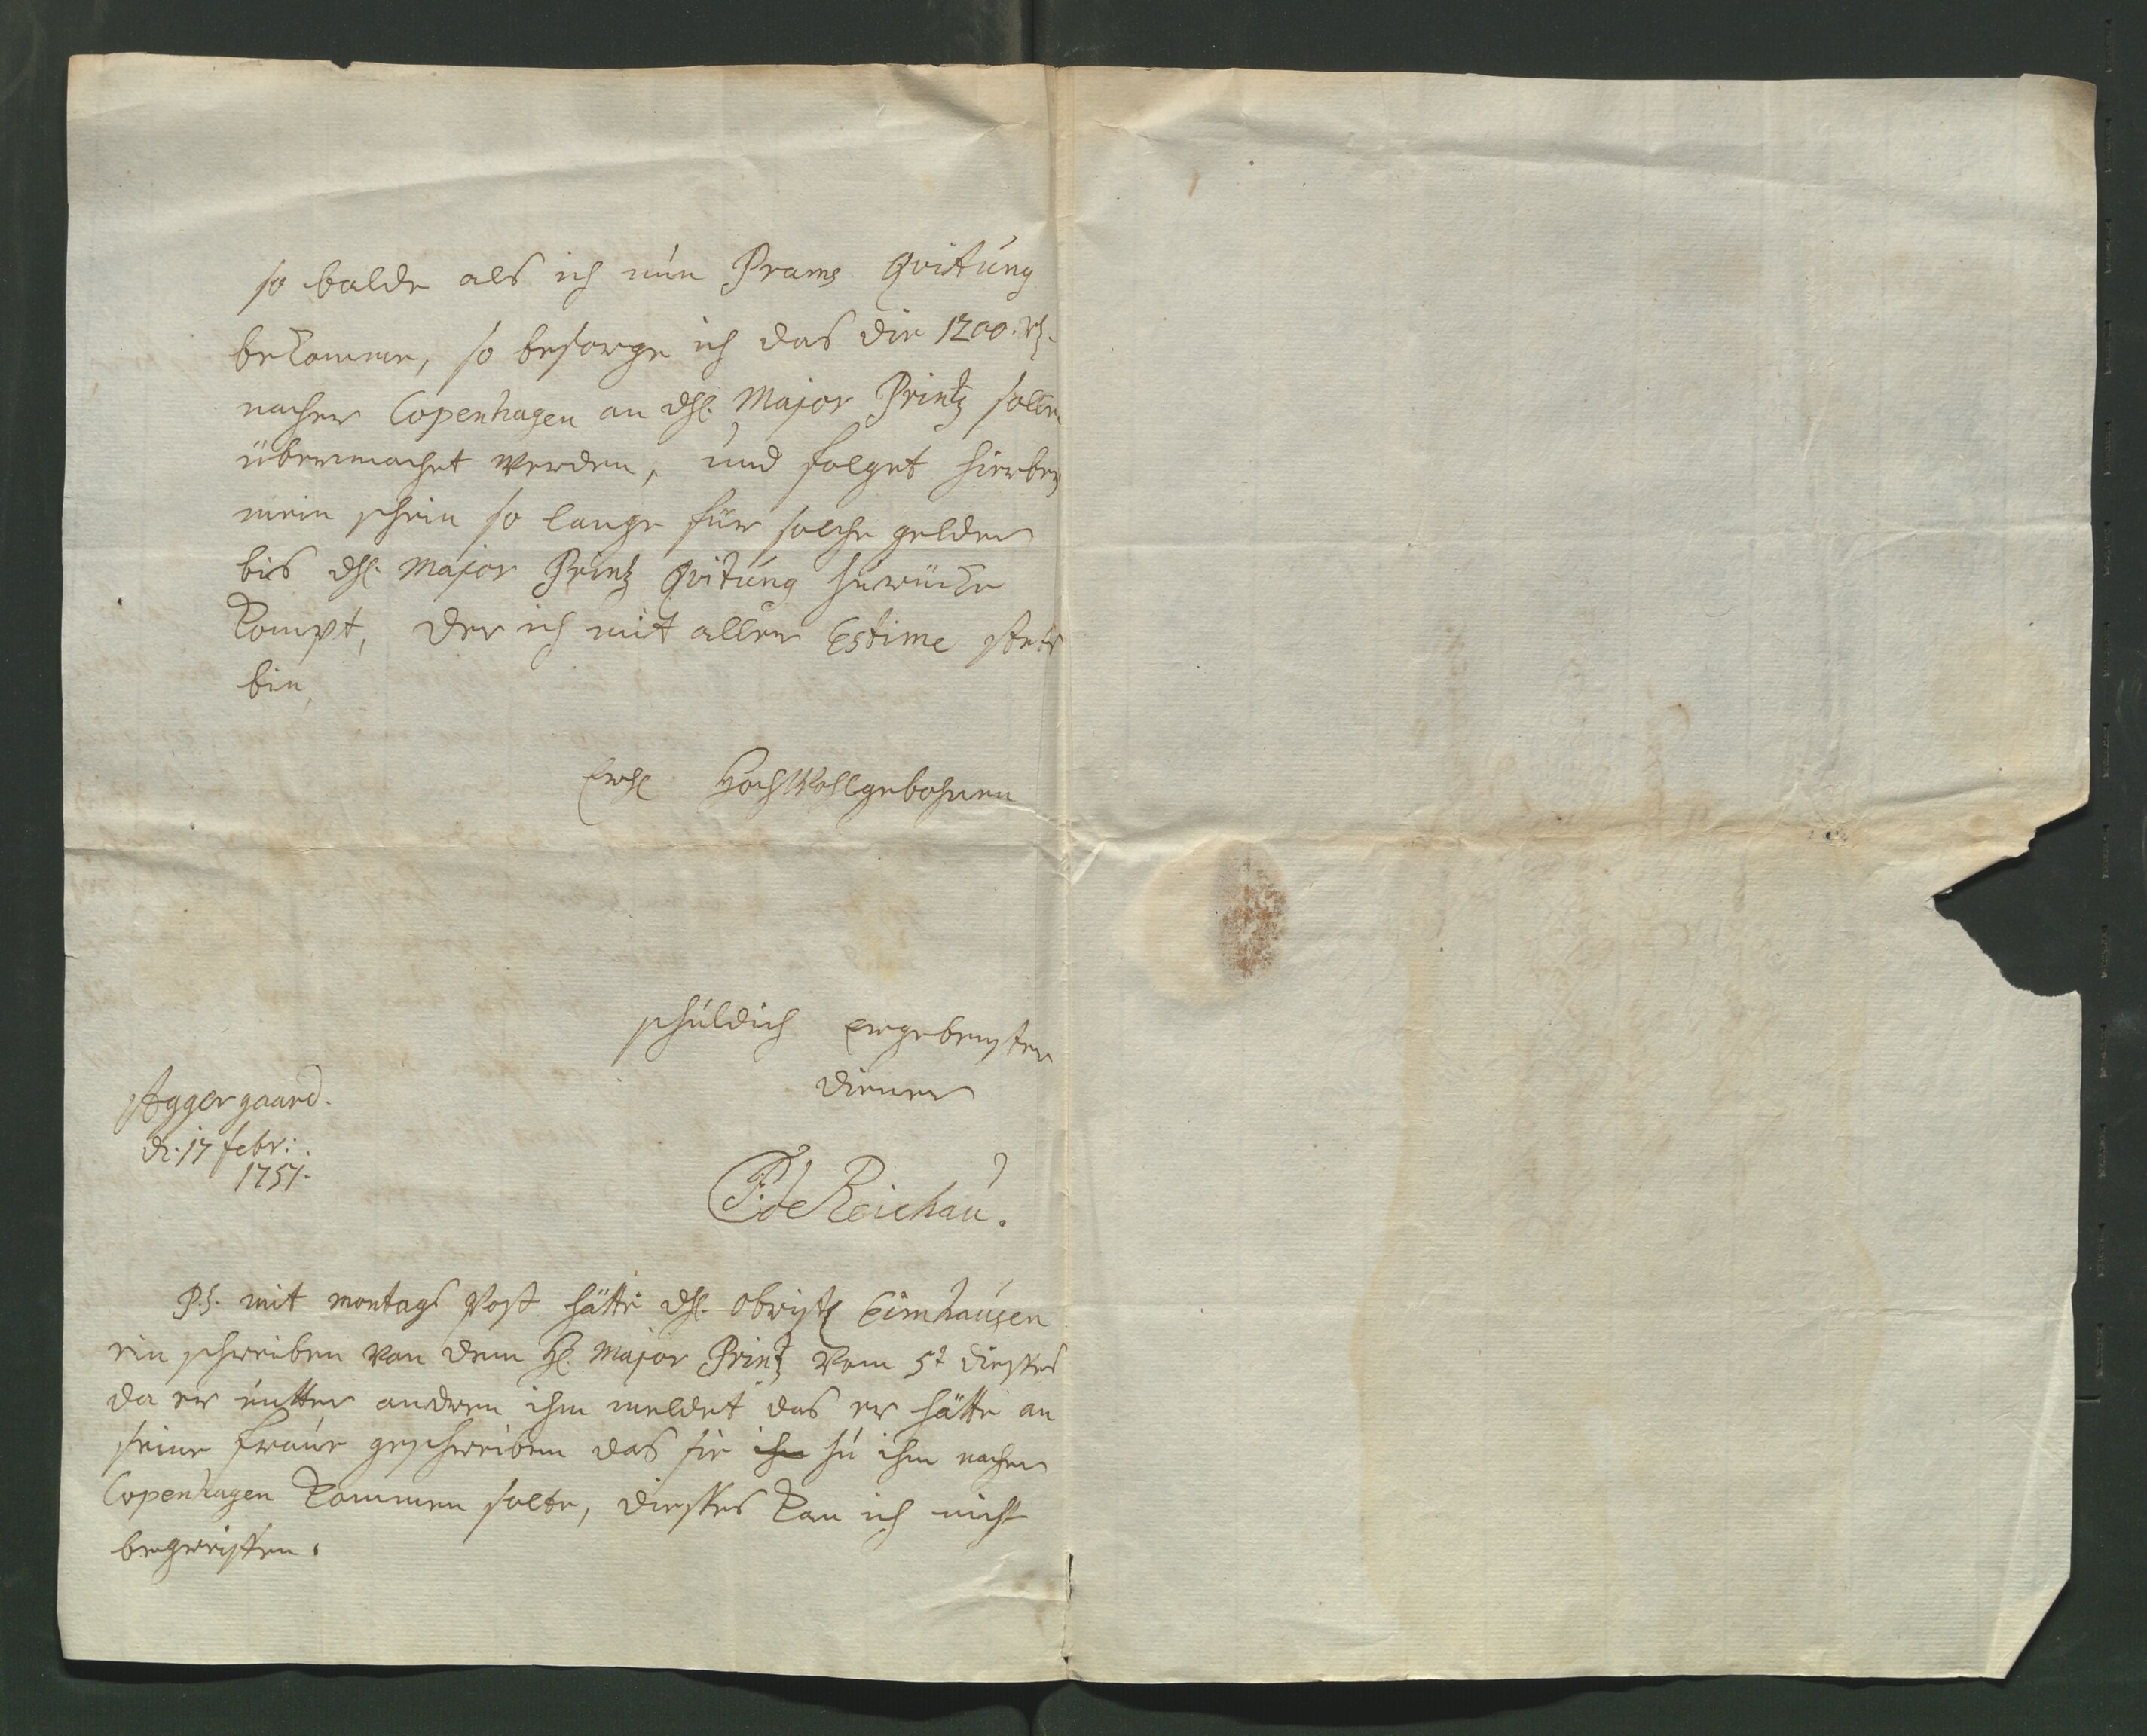 so balde als ich nun Prams Qvitung
bekomme, so besorge ich das die 1200 rh.
nacher Copenhagen an dhl. Major Printz sollen
übermachet werden, und folget hierbey
mein schein so lange für solche gelder
bis dhl. Major Printz Qvitung hurücke
kompt, der ich mit aller Estime stets
bin,
Ewhl HochWollgebohren
schuldich ergebenster
diener
Aggergaard.
d. 17 febr:
1757.
P: de Reichau.
P.S. mit montags Post hätte dhl. Obrist Eimhausen
ein schreiben von dem Hl. Major Printz vom 5t dieses
da er untter andren ihm meldet das er hätte an
seine fraue geschreiben das sie ihn hu ihm nacher
Copenhagen kommen solte, diesses kan ich nicht
begreiffen.